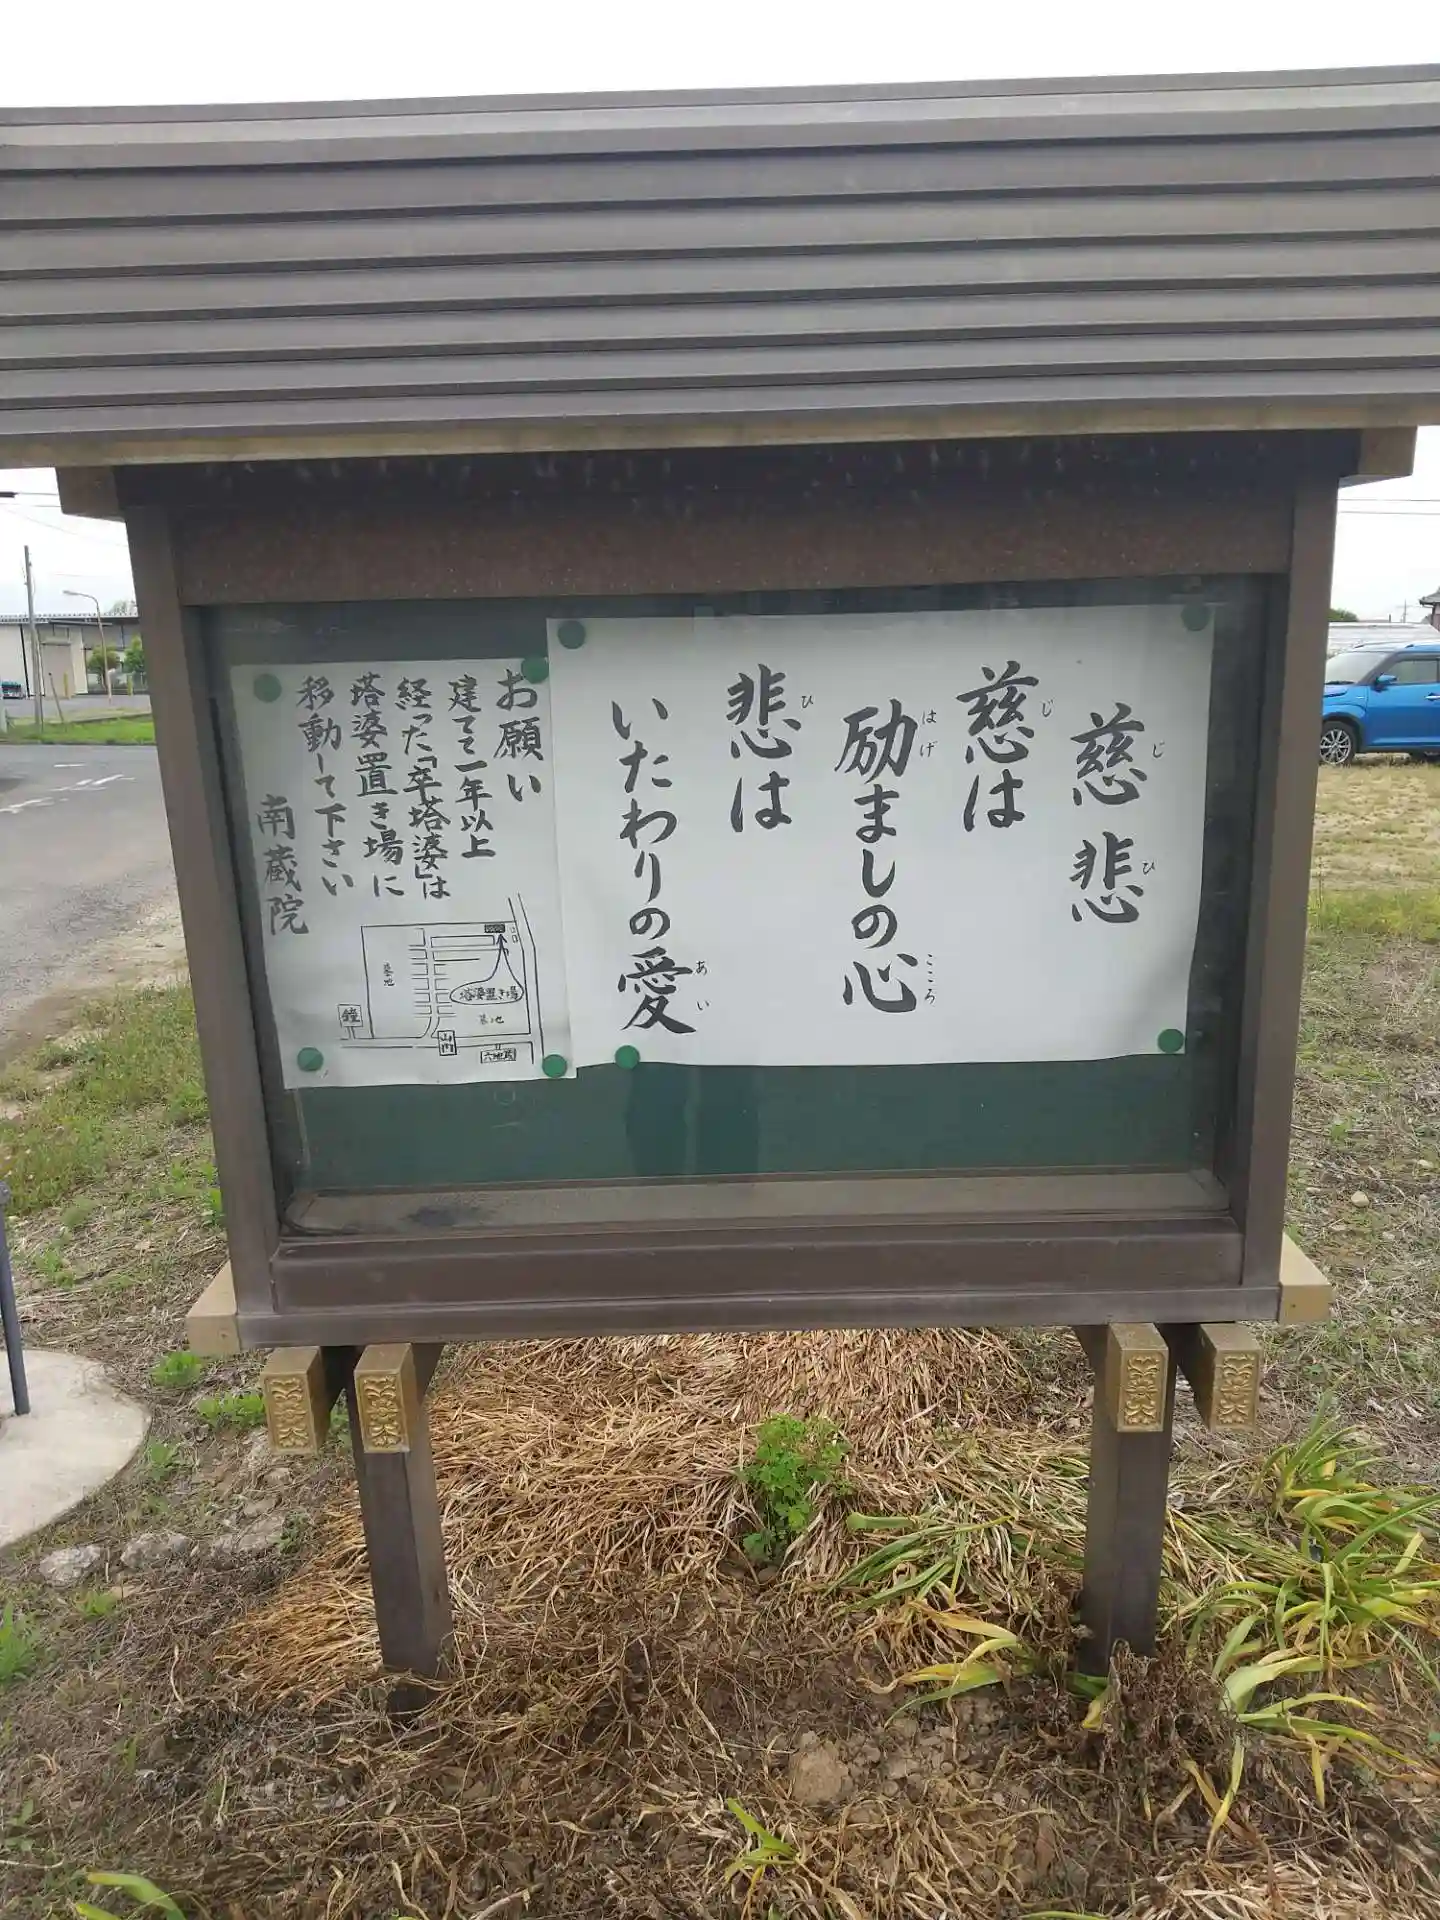 慈悲
じひ
慈は
じ
励ましの心
はげ
こころ
悲は
ひ
いたわりの愛
あい
お願い
建てて一年以上
経った「卒塔婆」は
塔婆置き場に
移動して下さい
南蔵院
墓地
塔婆置き場
墓地
鐘
山門
六地蔵